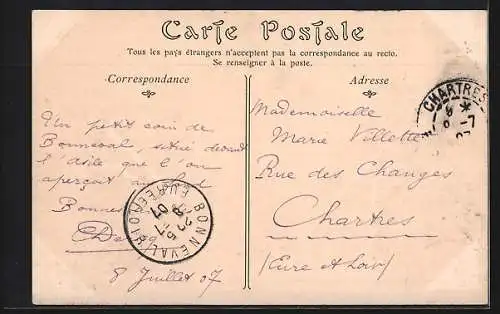 Carte Postale
Tous les pays étrangers n'acceptent pas la correspondance au recto.
Se renseigner à la poste.
Correspondance
Un petit coin de
Bonneval, situé devant
l'asile que l'on
aperçoit au
Bonne
8 Juillet 07
BONNEVAL
EURE-ET-LOIR
Adresse
Mademoiselle
Marie Villette
Rue des Changes
Chartres
(Eure et Loir)
CHARTRES